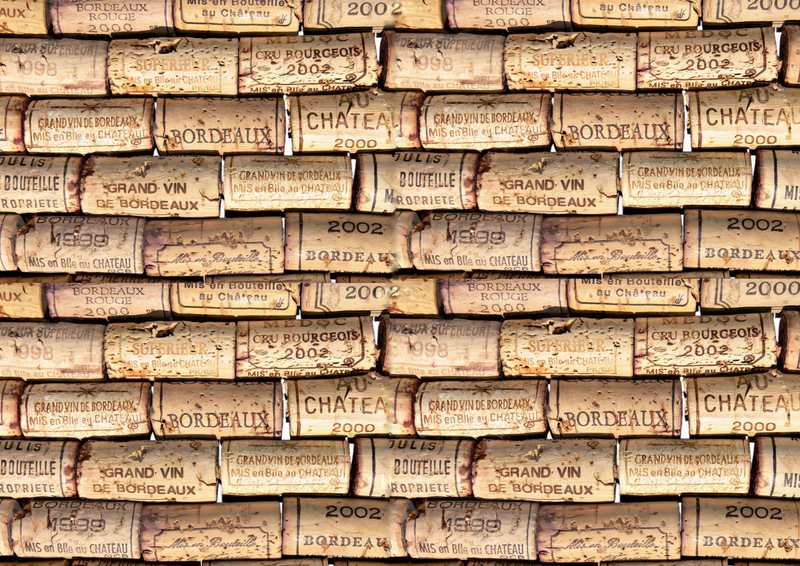 BORDEAUX
ROUGE
2000
Mis en Bouteille
au Château
2002
BORDEAUX
ROUGE
2000
Mis en Bouteille
au Château
2000
BORDEAUX SUPERIEUR
1998
SUPERIEUR
MIS en Bile au CHATEAU
MEDOC
CRU BOURGEOIS
2002
MIS en Bile au CHATEAU
BORDEAUX SUPERIEUR
1998
SUPERIEUR
MIS en Bile au CHATEAU
MEDOC
CRU BOURGEOIS
2002
MIS en Bile au CHATEAU
GRAND VIN DE BORDEAUX
MIS en Bile au CHATEAU
BORDEAUX
AU
CHATEA
2000
GRAND VIN DE BORDEAUX
MIS en Bile au CHATEAU
BORDEAUX
AU
CHATEA
2000
BOUTEILLE
ROPRIETE
GRAND VIN
DE BORDEAUX
GRAND VIN DE BORDEAUX
MIS en Bile au CHATEAU
BOUTEILLE
ROPRIETE
GRAND VIN
DE BORDEAUX
GRAND VIN DE BORDEAUX
MIS en Bile au CHATEAU
BORDEAUX
1999
MIS en Bile au CHATEAU
Mis en Bouteille
2002
BORDEAU
BORDEAUX
1999
MIS en Bile au CHATEAU
Mis en Bouteille
2002
BORDEAUX
BORDEAUX
ROUGE
2000
Mis en Bouteille
au Château
2002
BORDEAUX
ROUGE
2000
Mis en Bouteille
au Château
2000
BORDEAUX SUPERIEUR
1998
SUPERIEUR
MIS en Bile au CHATEAU
MEDOC
CRU BOURGEOIS
2002
MIS en Bile au CHATEAU
BORDEAUX SUPERIEUR
1998
SUPERIEUR
MIS en Bile au CHATEAU
CRU BOURGEOIS
2002
MIS en Bile au CHATEAU
GRAND VIN DE BORDEAUX
MIS en Bile au CHATEAU
BORDEAUX
AU
CHATEA
2000
GRAND VIN DE BORDEAUX
MIS en Bile au CHATEAU
BORDEAUX
AU
CHATEA
2000
BOUTEILLE
ROPRIETE
GRAND VIN
DE BORDEAUX
GRAND VIN DE BORDEAUX
MIS en Bile au CHATEAU
BOUTEILLE
ROPRIETE
GRAND VIN
DE BORDEAUX
GRAND VIN DE BORDEAUX
MIS en Bile au CHATEAU
BORDEAUX
1999
MIS en Bile au CHATEAU
Mis en Bouteille
2002
BORDEAU
BORDEAUX
1999
MIS en Bile au CHATEAU
Mis en Bouteille
2002
BORDEAUX